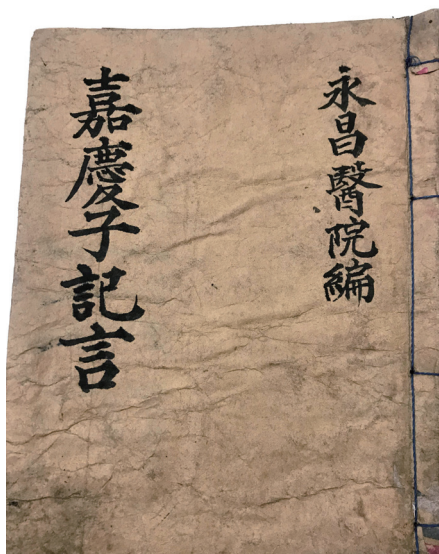 永昌醫院編
嘉慶子記言